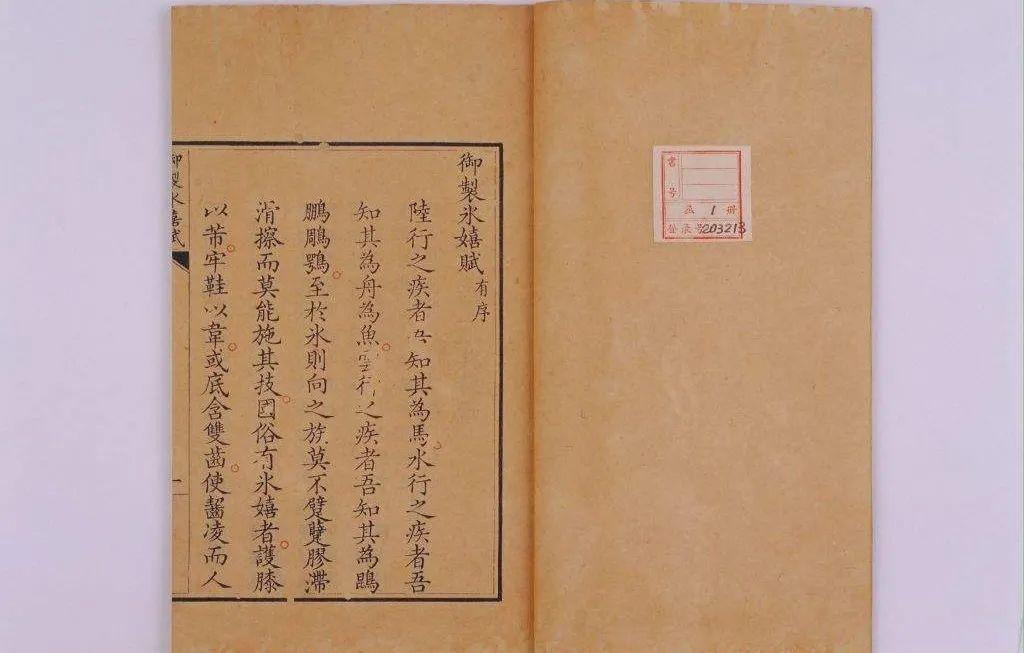 御製氷嬉賦 有序
陸行之疾者吾知其為馬水行之疾者吾
知其為舟為魚行之疾者吾知其為鵾
鵬鵰鶚至於氷則向之族莫不躄躠膠滯
滑擦而莫能施其技國俗有氷嬉者護膝
以芾牢鞋以韋或底含雙齒使齧凌而人
御製氷嬉賦
一
書號
函 1 冊
登录号 203213